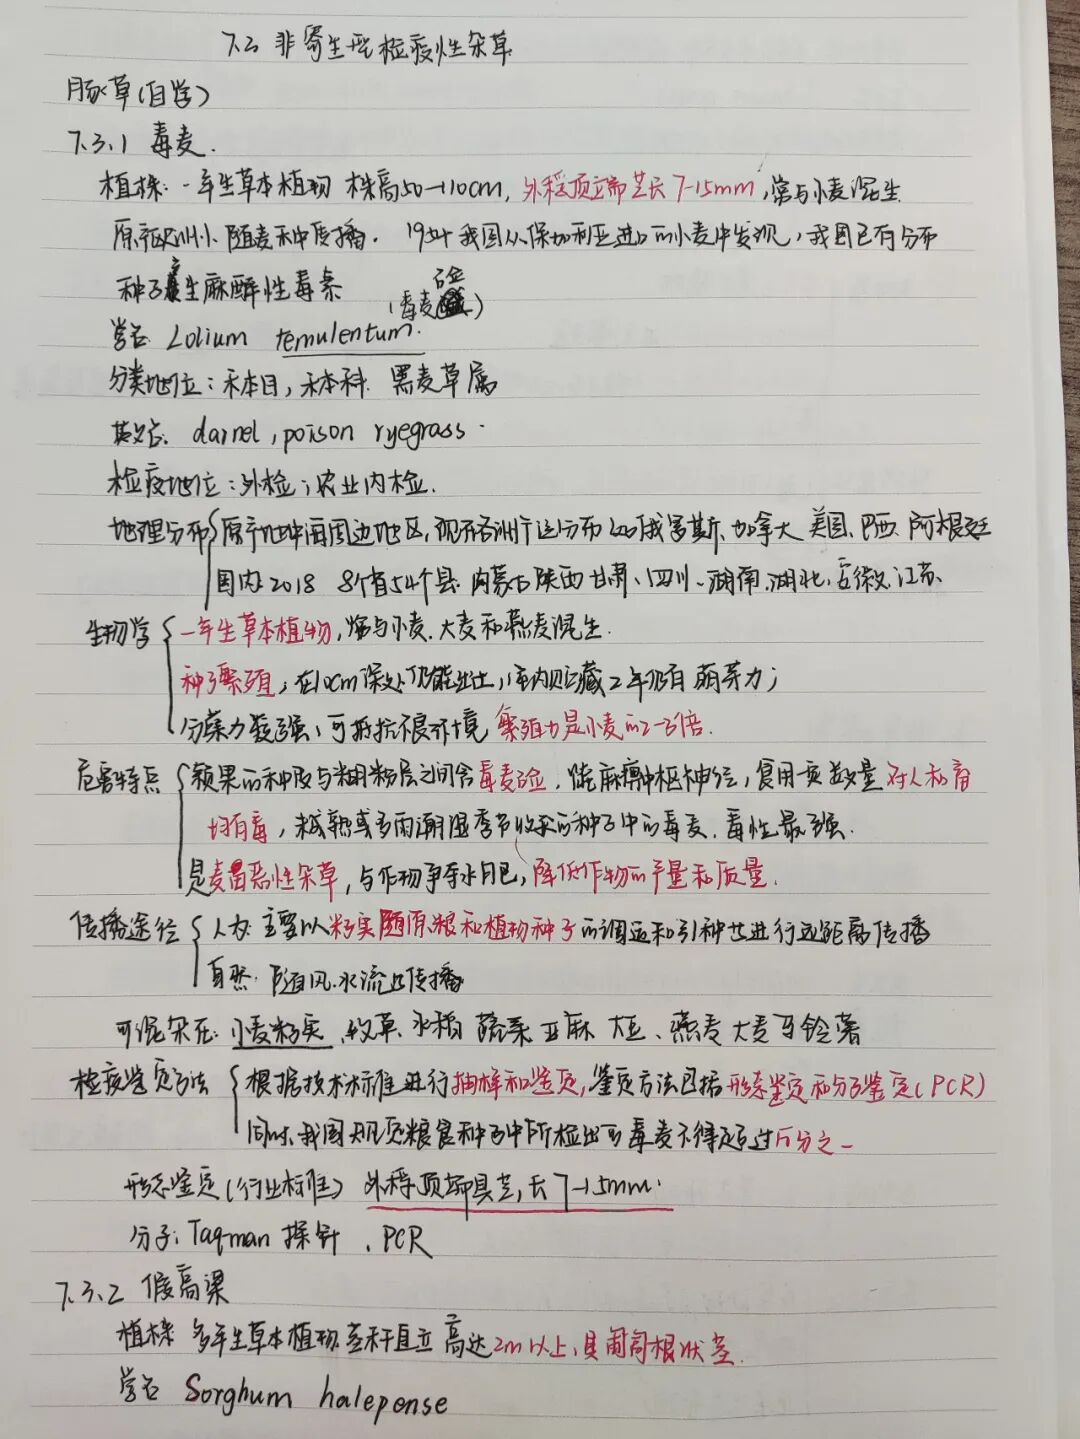 7.3 非寄生性检疫性杂草
豚草(自学)
7.3.1 毒麦.
植株: 一年生草本植物 株高50-110cm, 外稃顶端芒长7-15mm, 常与小麦混生
原产欧洲, 随麦种传播. 1954 我国从保加利亚进口的小麦中发现, 我国已有分布
种子产生麻醉性毒素 (毒麦碱)
学名 Lolium temulentum.
分类地位: 禾本目, 禾本科 黑麦草属
英文名: darnel, poison ryegrass.
检疫地位: 外检; 农业内检.
地理分布 原产地中海周边地区, 现在各洲广泛分布 如俄罗斯、加拿大 美国、巴西、阿根廷
国内: 2018 8个省54个县: 内蒙古 陕西 甘肃、四川、湖南、湖北、安徽、江苏、
生物学 一年生草本植物, 常与小麦、大麦和燕麦混生.
种子繁殖, 在10cm深处仍能出土, 室内贮藏2年仍有萌芽力;
分蘖力较强, 可抵抗不良环境 繁殖力是小麦的2-3倍.
危害特点 颖果的种皮与糊粉层之间含毒麦碱, 能麻痹中枢神经, 食用一定数量 对人和畜
均有毒, 未成熟或多雨潮湿季节收获的种子中的毒麦, 毒性最强.
是麦田恶性杂草, 与作物争夺水肥, 降低作物的产量和质量.
传播途径 人为: 主要以籽实随原粮和植物种子的调运和引种等进行远距离传播
自然: 随风、水流传播
可混杂在: 小麦籽实、牧草、水稻 蔬菜 亚麻 大豆、燕麦 大麦 马铃薯
检疫鉴定方法 根据技术标准进行抽样和鉴定, 鉴定方法包括形态鉴定和分子鉴定(PCR)
同时, 我国规定粮食种子中所检出的毒麦不得超过万分之一
形态鉴定(行业标准) 外稃顶端具芒, 长7-15mm.
分子: Taqman 探针、PCR
7.3.2 假高粱
植株 多年生草本植物 茎秆直立 高达2m以上, 具匍匐根状茎.
学名 Sorghum halepense